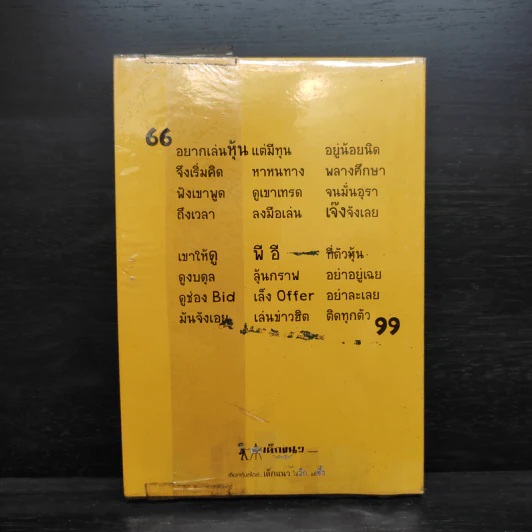 “
อยากเล่นหุ้น แต่มีทุน อยู่น้อยนิด
จึงเริ่มคิด หาหนทาง พลางศึกษา
ฟังเขาพูด ดูเขาเทรด จนมั่นอุรา
ถึงเวลา ลงมือเล่น เจ๊งจังเลย
เขาให้ดู พี อี ที่ตัวหุ้น
ดูงบดุล ลุ้นกราฟ อย่าอยู่เฉย
ดูช่อง Bid เล็ง Offer อย่าละเลย
มันจังเอย เล่นข่าวฮิต ติดทุกตัว
”
เด็กแนว